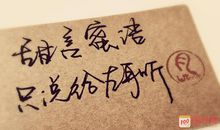 甜言蜜语
只说给左耳听